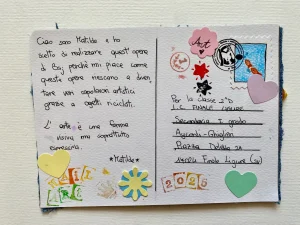 Ciao sono Matilde e ho
scelto di realizzare quest'opera
di Baj perché mi piace come
queste opere riescono a diven
tare veri capolavori artistici
grazie a oggetti riciclati.
L'arte è una forma
visiva ma soprattutto
espressiva.
*Matilde*
Art
Per la classe 2°D
I.C. FINALE LIGURE
Secondaria I grado
Piazza
17024 Finale Ligure (SV)
ART
2025